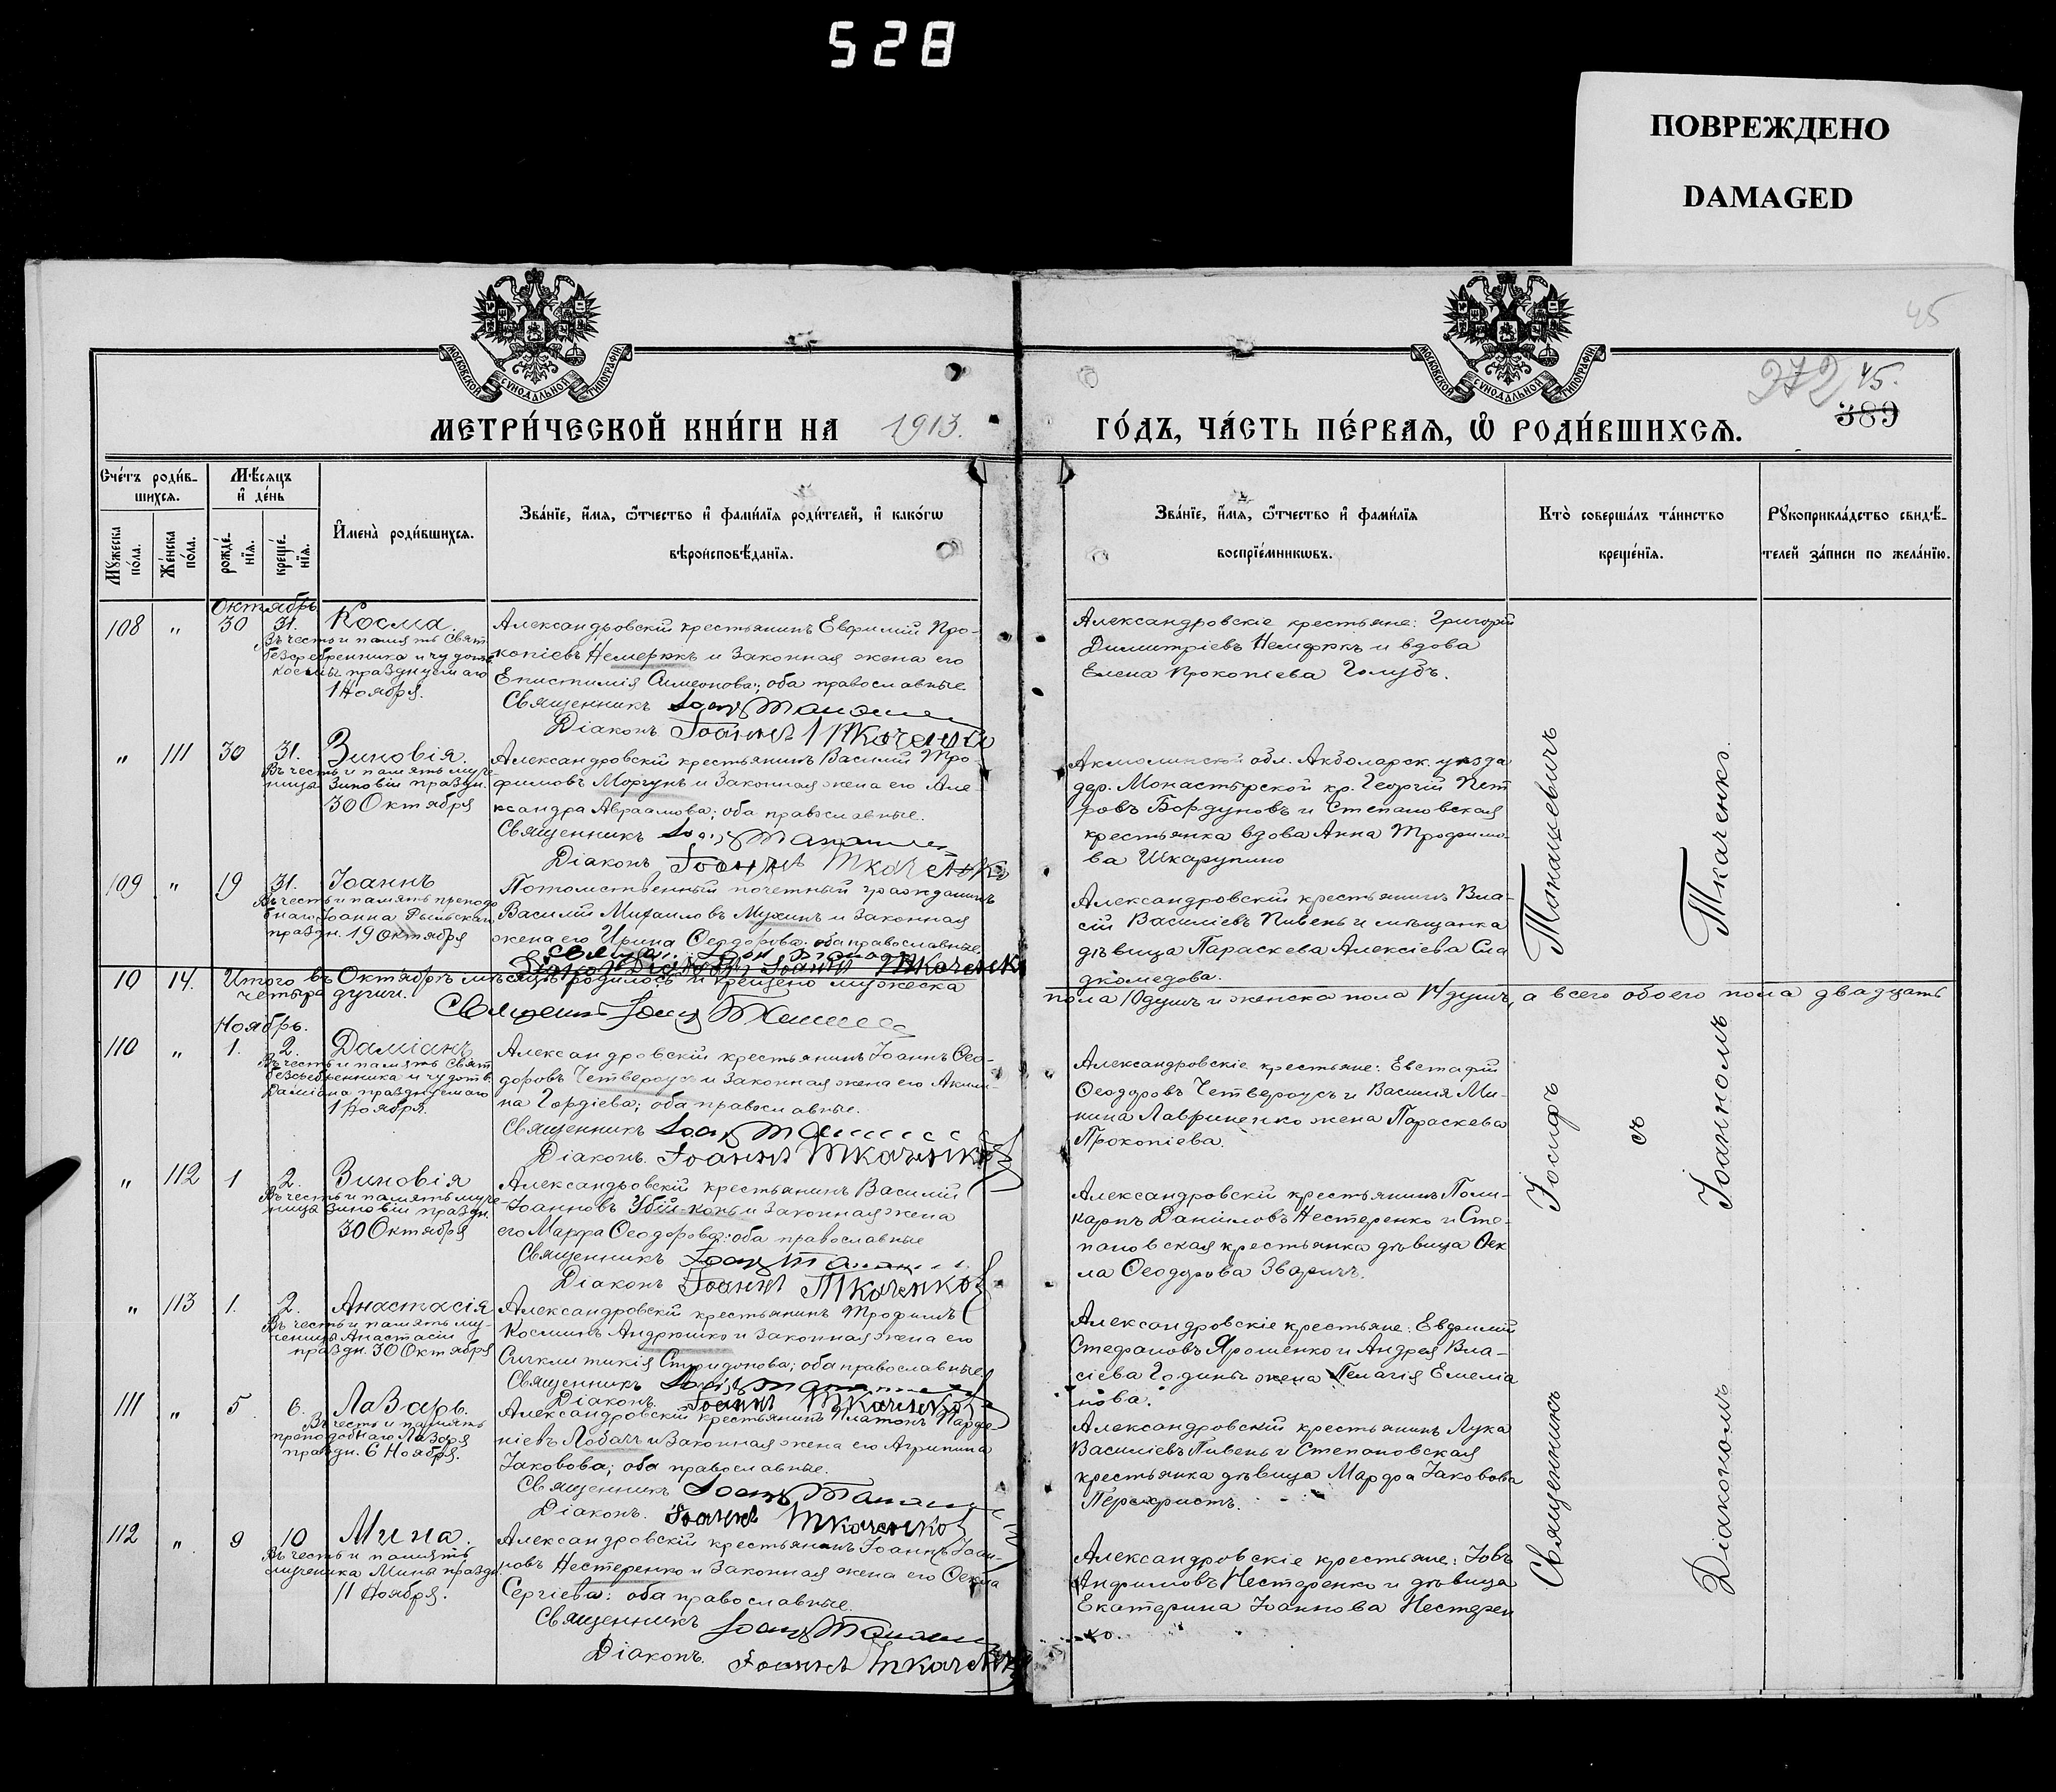 528
ПОВРЕЖДЕНО
DAMAGED
МОСКОВСКОЙ СѴНОДАЛЬНОЙ ТИПОГРАФІИ
МОСКОВСКОЙ СѴНОДАЛЬНОЙ ТИПОГРАФІИ
45
272 45.
389
МЕТРИ́ЧЕСКОЙ КНИ́ГИ НА 1913.
ГО́ДЪ, ЧА́СТЬ ПЕ́РВАѦ, Ѽ РОДИ́ВШИХСѦ.
Сче́тъ роди́в-
шихсѧ.
Мꙋжеска по́ла.
Же́нска по́ла.
Мѣ́сѧцъ и҆ де́нь
рожде́-нїѧ.
креще́-нїѧ.
И҆мена̀ роди́вшихсѧ.
Зва́нїе, и҆́мѧ, ѻ҆́тчество и҆ фами́лїѧ роди́телей, и҆ како́гѡ
вѣроисповѣ́данїѧ.
Зва́нїе, и҆́мѧ, ѻ҆́тчество и҆ фами́лїѧ
воспрїе́мникѡвъ.
Кто̀ соверша́лъ та́инство
креще́нїѧ.
Рꙋкоприкла́дство свидѣ́-
телей за́писи по жела́нїю.
Октябрь
108 " 30 31. Косма.
Въ честь и память Свят.
безсребренника и чудотв.
Космы празднуемаго
1 Ноября.
Александровскій крестьянинъ Евфимій Про-
копіевъ Немержкъ и законная жена его
Епистимія Симеонова; оба православные.
Священникъ
Діаконъ Іоаннъ Ткаченко
Александровскіе крестьяне: Григорій
Димитріевъ Немержкъ и вдова
Елена Прокопіева Голубъ.
" 111 30 31. Зиновія.
Въ честь и память муче-
ницы Зиновіи праздн.
30 Октября
Александровскій крестьянинъ Василій Тро-
фимовъ Моргунъ и законная жена его Але-
ксандра Авраамова; оба православные.
Священникъ
Діаконъ Іоаннъ Ткаченко
Акмолинской обл. Акболарск. уезда
дер. Монастырской кр. Георгій Пет
ровъ Бордуновъ и Степановская
крестьянка вдова Анна Трофимо-
ва Шкарупино
109 " 19 31. Іоаннъ
Въ честь и память преподо
бнаго Іоанна Рыльскаго
праздн. 19 Октября
Потомственный почетный гражданинъ
Василій Михаиловъ Мухинъ и законная
жена его Ирина Ѳеодорова; оба православные.
Іоаннъ Ткаченко
Александровскій крестьянинъ Вла-
сій Василіевъ Пивень и мѣщанка
дѣвица Параскева Алексіева Сла
дкомедова.
10 14. Итого въ Октябрѣ мѣсяцѣ родилось и крещено мужеска
пола 10 душъ и женска пола 14 душъ, а всего обоего пола двадцать
четыре души.
Ноябрь.
110 " 1. 2. Даміанъ
Въ честь и память Свят.
безсребренника и чудотв.
Даміана празднуемаго
1 Ноября.
Александровскій крестьянинъ Іоаннъ Ѳео-
доровъ Четвероусъ и законная жена его Акили-
на Гордіева; оба православные.
Священникъ
Діаконъ. Іоаннъ Ткаченко
Александровскіе крестьяне: Евстафій
Ѳеодоровъ Четвероусъ и Василія Ми-
нина Лавриненко жена Параскева
Прокопіева.
" 112 1 2. Зиновія
Въ честь и память муче-
ницы Зиновіи праздн.
30 Октября
Александровскій крестьянинъ Василій
Іоанновъ Убій-конь и законная жена
его Марфа Ѳеодорова: оба православные
Священникъ
Діаконъ Іоаннъ Ткаченко
Александровскій крестьянинъ Поли-
карпъ Даніиловъ Нестеренко и Сте-
пановская крестьянка дѣвица Ѳек
ла Ѳеодорова Зваричъ.
" 113 1. 2. Анастасія
Въ честь и память му-
ченицы Анастасіи
праздн. 30 Октября
Александровскій крестьянинъ Трофимъ
Косминъ Андрюшко и законная жена его
Сигклитикія Спиридонова; оба православные.
Священникъ
Діаконъ. Іоаннъ Ткаченко
Александровскіе крестьяне: Евфимій
Стефановъ Ярошенко и Андрея Вла-
сіева Годины жена Пелагія Емеліа
нова.
111 " 5 6. Лазарь.
Въ честь и память
преподобнаго Лазаря
праздн. 6 Ноября.
Александровскій крестьянинъ Платонъ Парфе-
ніевъ Лобачъ и законная жена его Агрипина
Іаковова; оба православные.
Священникъ
Діаконъ. Іоаннъ Ткаченко
Александровскій крестьянинъ Лука
Василіевъ Пивень и Степановская
крестьянка дѣвица Марфа Іаковова
Перехристъ.
112 " 9 10 Мина.
Въ честь и память
мученика Мины праздн.
11 Ноября.
Александровскій крестьянинъ Іоаннъ Іоан-
новъ Нестеренко и законная жена его Ѳекла
Сергіева: оба православные.
Священникъ
Діаконъ. Іоаннъ Ткаченко
Александровскіе крестьяне: Іовъ
Анфимовъ Нестеренко и дѣвица
Екатерина Іоаннова Нестерен
ко.
Священникъ Іосифъ Танашевичъ
съ
Діакономъ Іоанномъ Ткаченко.